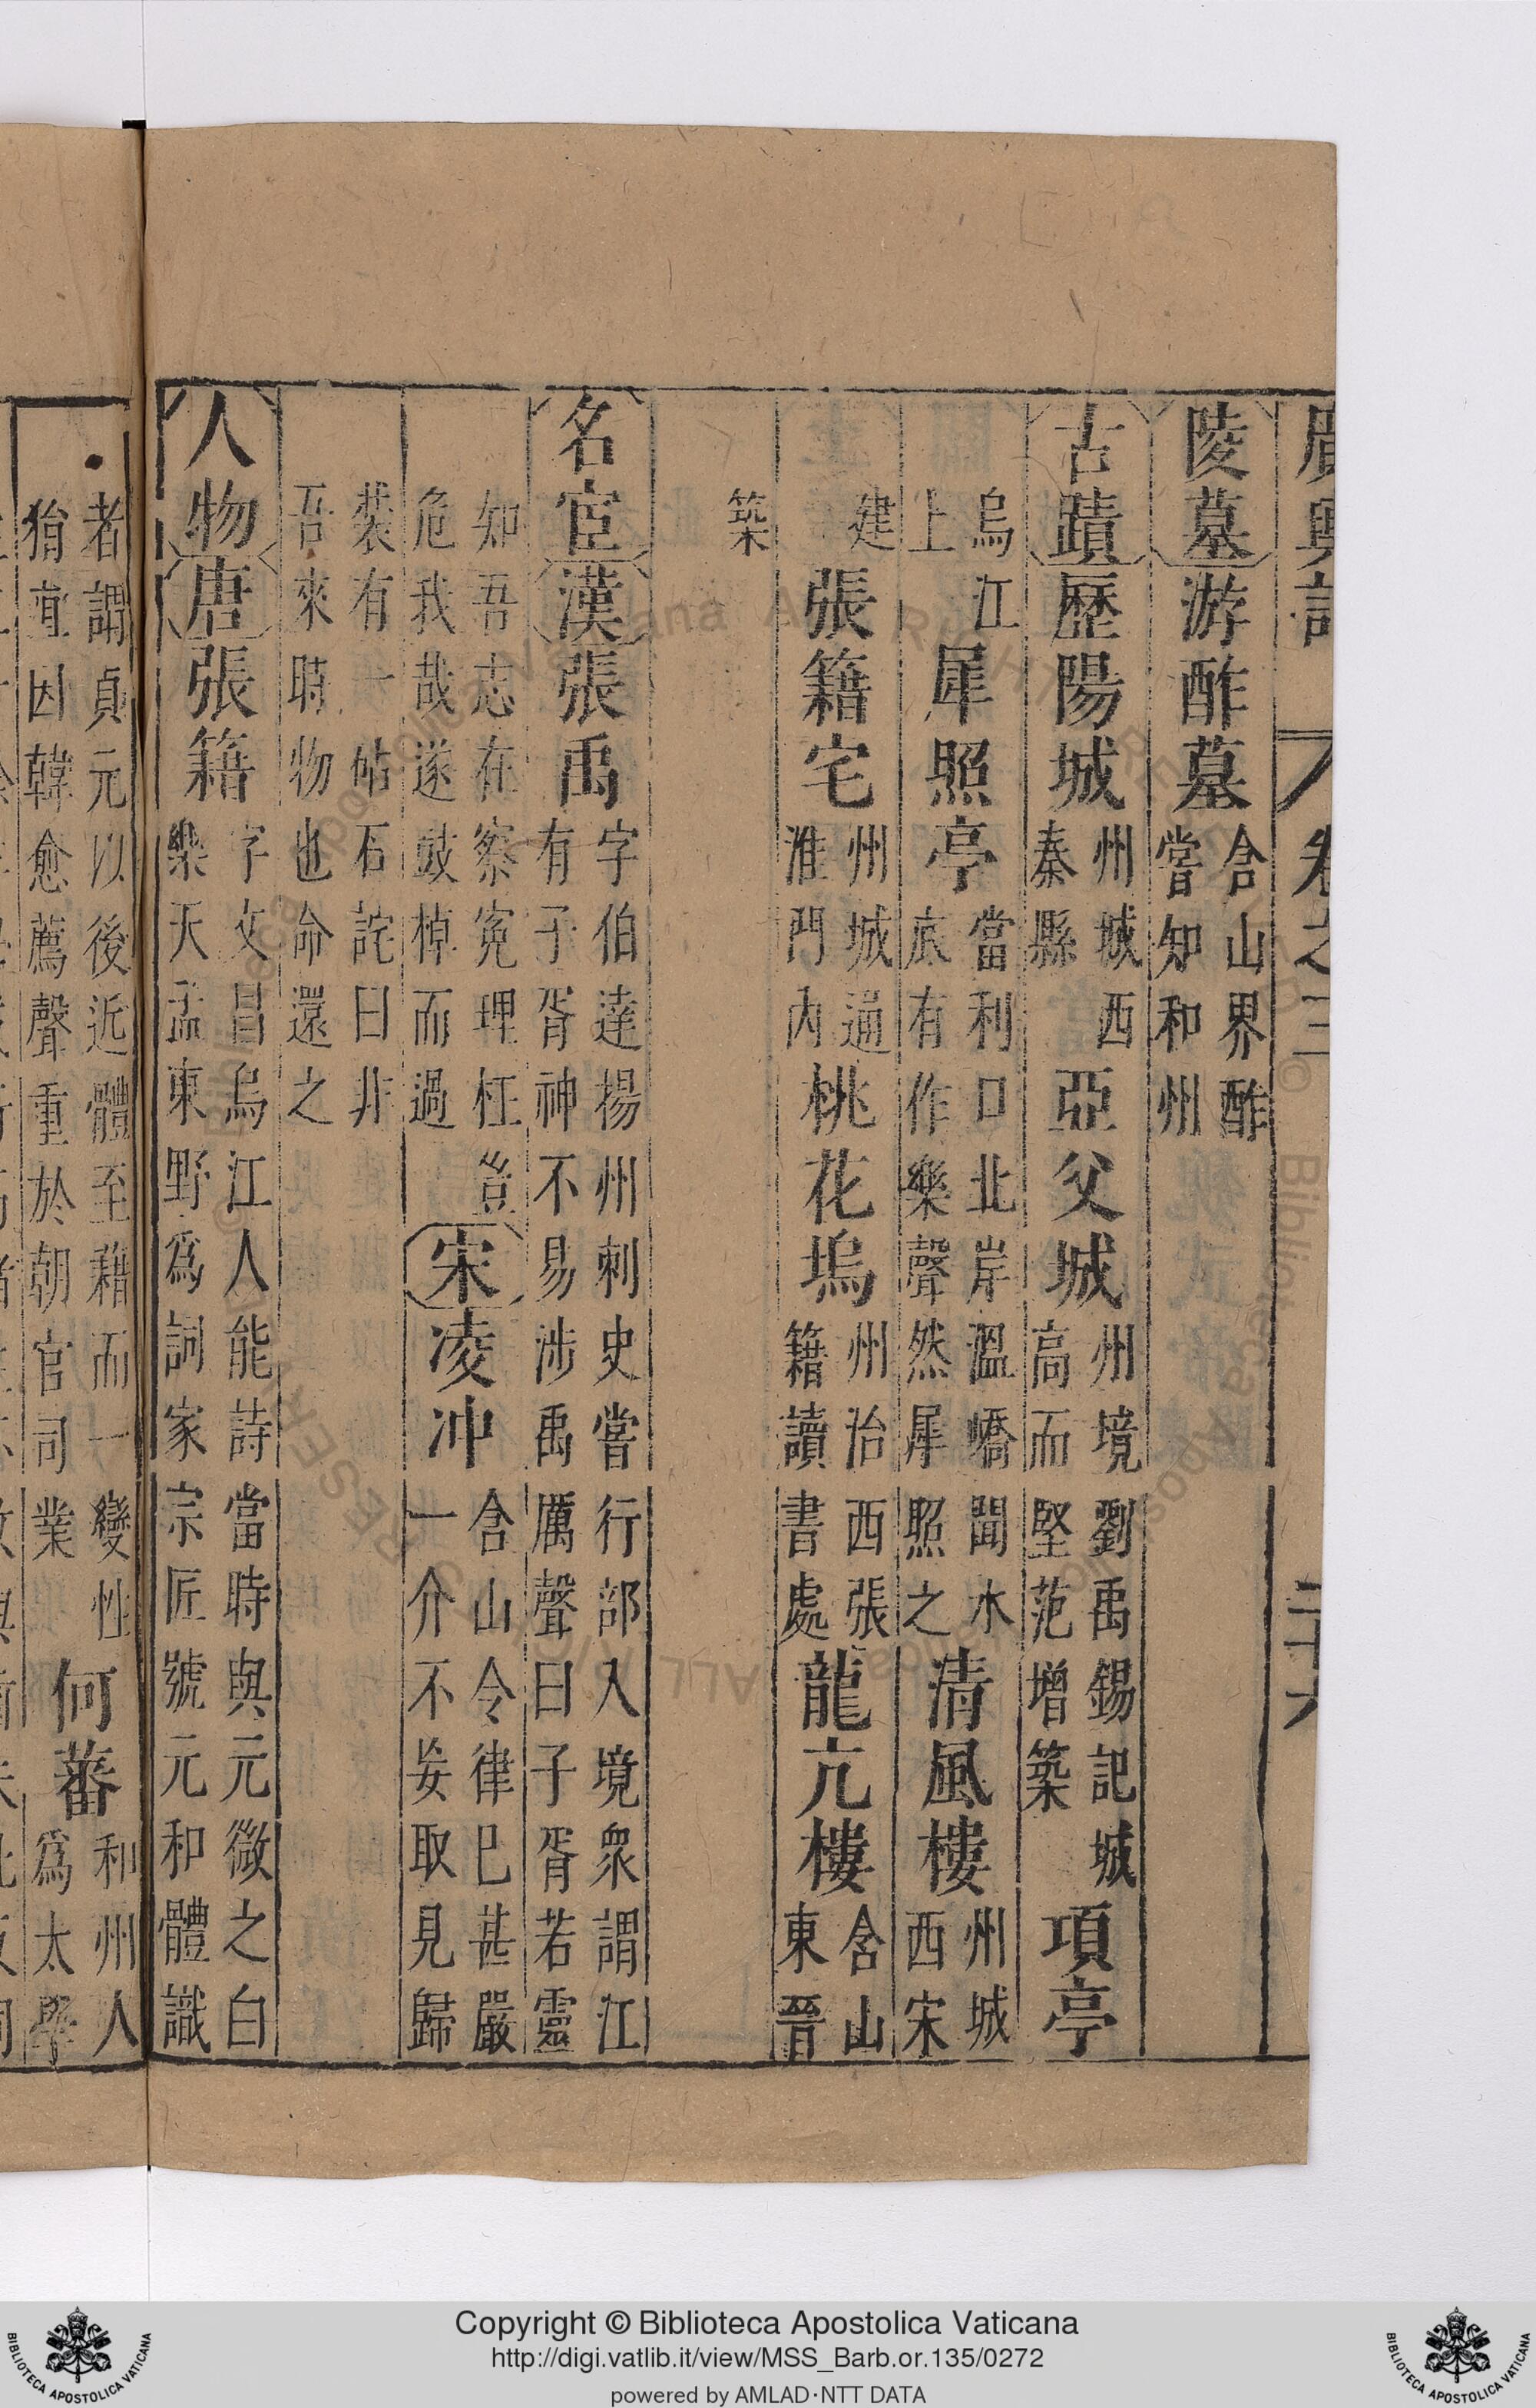 廣輿記 卷之三 二十六
陵墓 游酢墓 含山界酢嘗知和州
古蹟 歷陽城 州城西秦縣 亞父城 州境劉禹錫記城高而堅范增築 項亭
烏江上 犀照亭 當利口北岸溫嶠聞水底有作樂聲然犀照之 清風樓 州城西宋
建 張籍宅 州城通淮門內 桃花塢 州治西張籍讀書處 龍亢樓 含山東晉
築
名宦 漢 張禹 字伯達揚州刺史嘗行部入境衆謂江有子胥神不易涉禹厲聲曰子胥若靈
知吾志在察寃理枉豈危我哉遂鼓棹而過 宋 凌冲 含山令律巳甚嚴一介不妄取見歸
裝有一帖石詫曰非吾來時物也命還之
人物 唐 張籍 字文昌烏江人能詩當時與元微之白樂天孟東野爲詞家宗匠號元和體識
者謂貞元以後近體至籍而一變性狷直因韓愈薦聲重於朝官司業 何蕃 和州人爲太學
Copyright © Biblioteca Apostolica Vaticana
http://digi.vatlib.it/view/MSS_Barb.or.135/0272
powered by AMLAD·NTT DATA
BIBLIOTECA APOSTOLICA VATICANA
BIBLIOTECA APOSTOLICA VATICANA